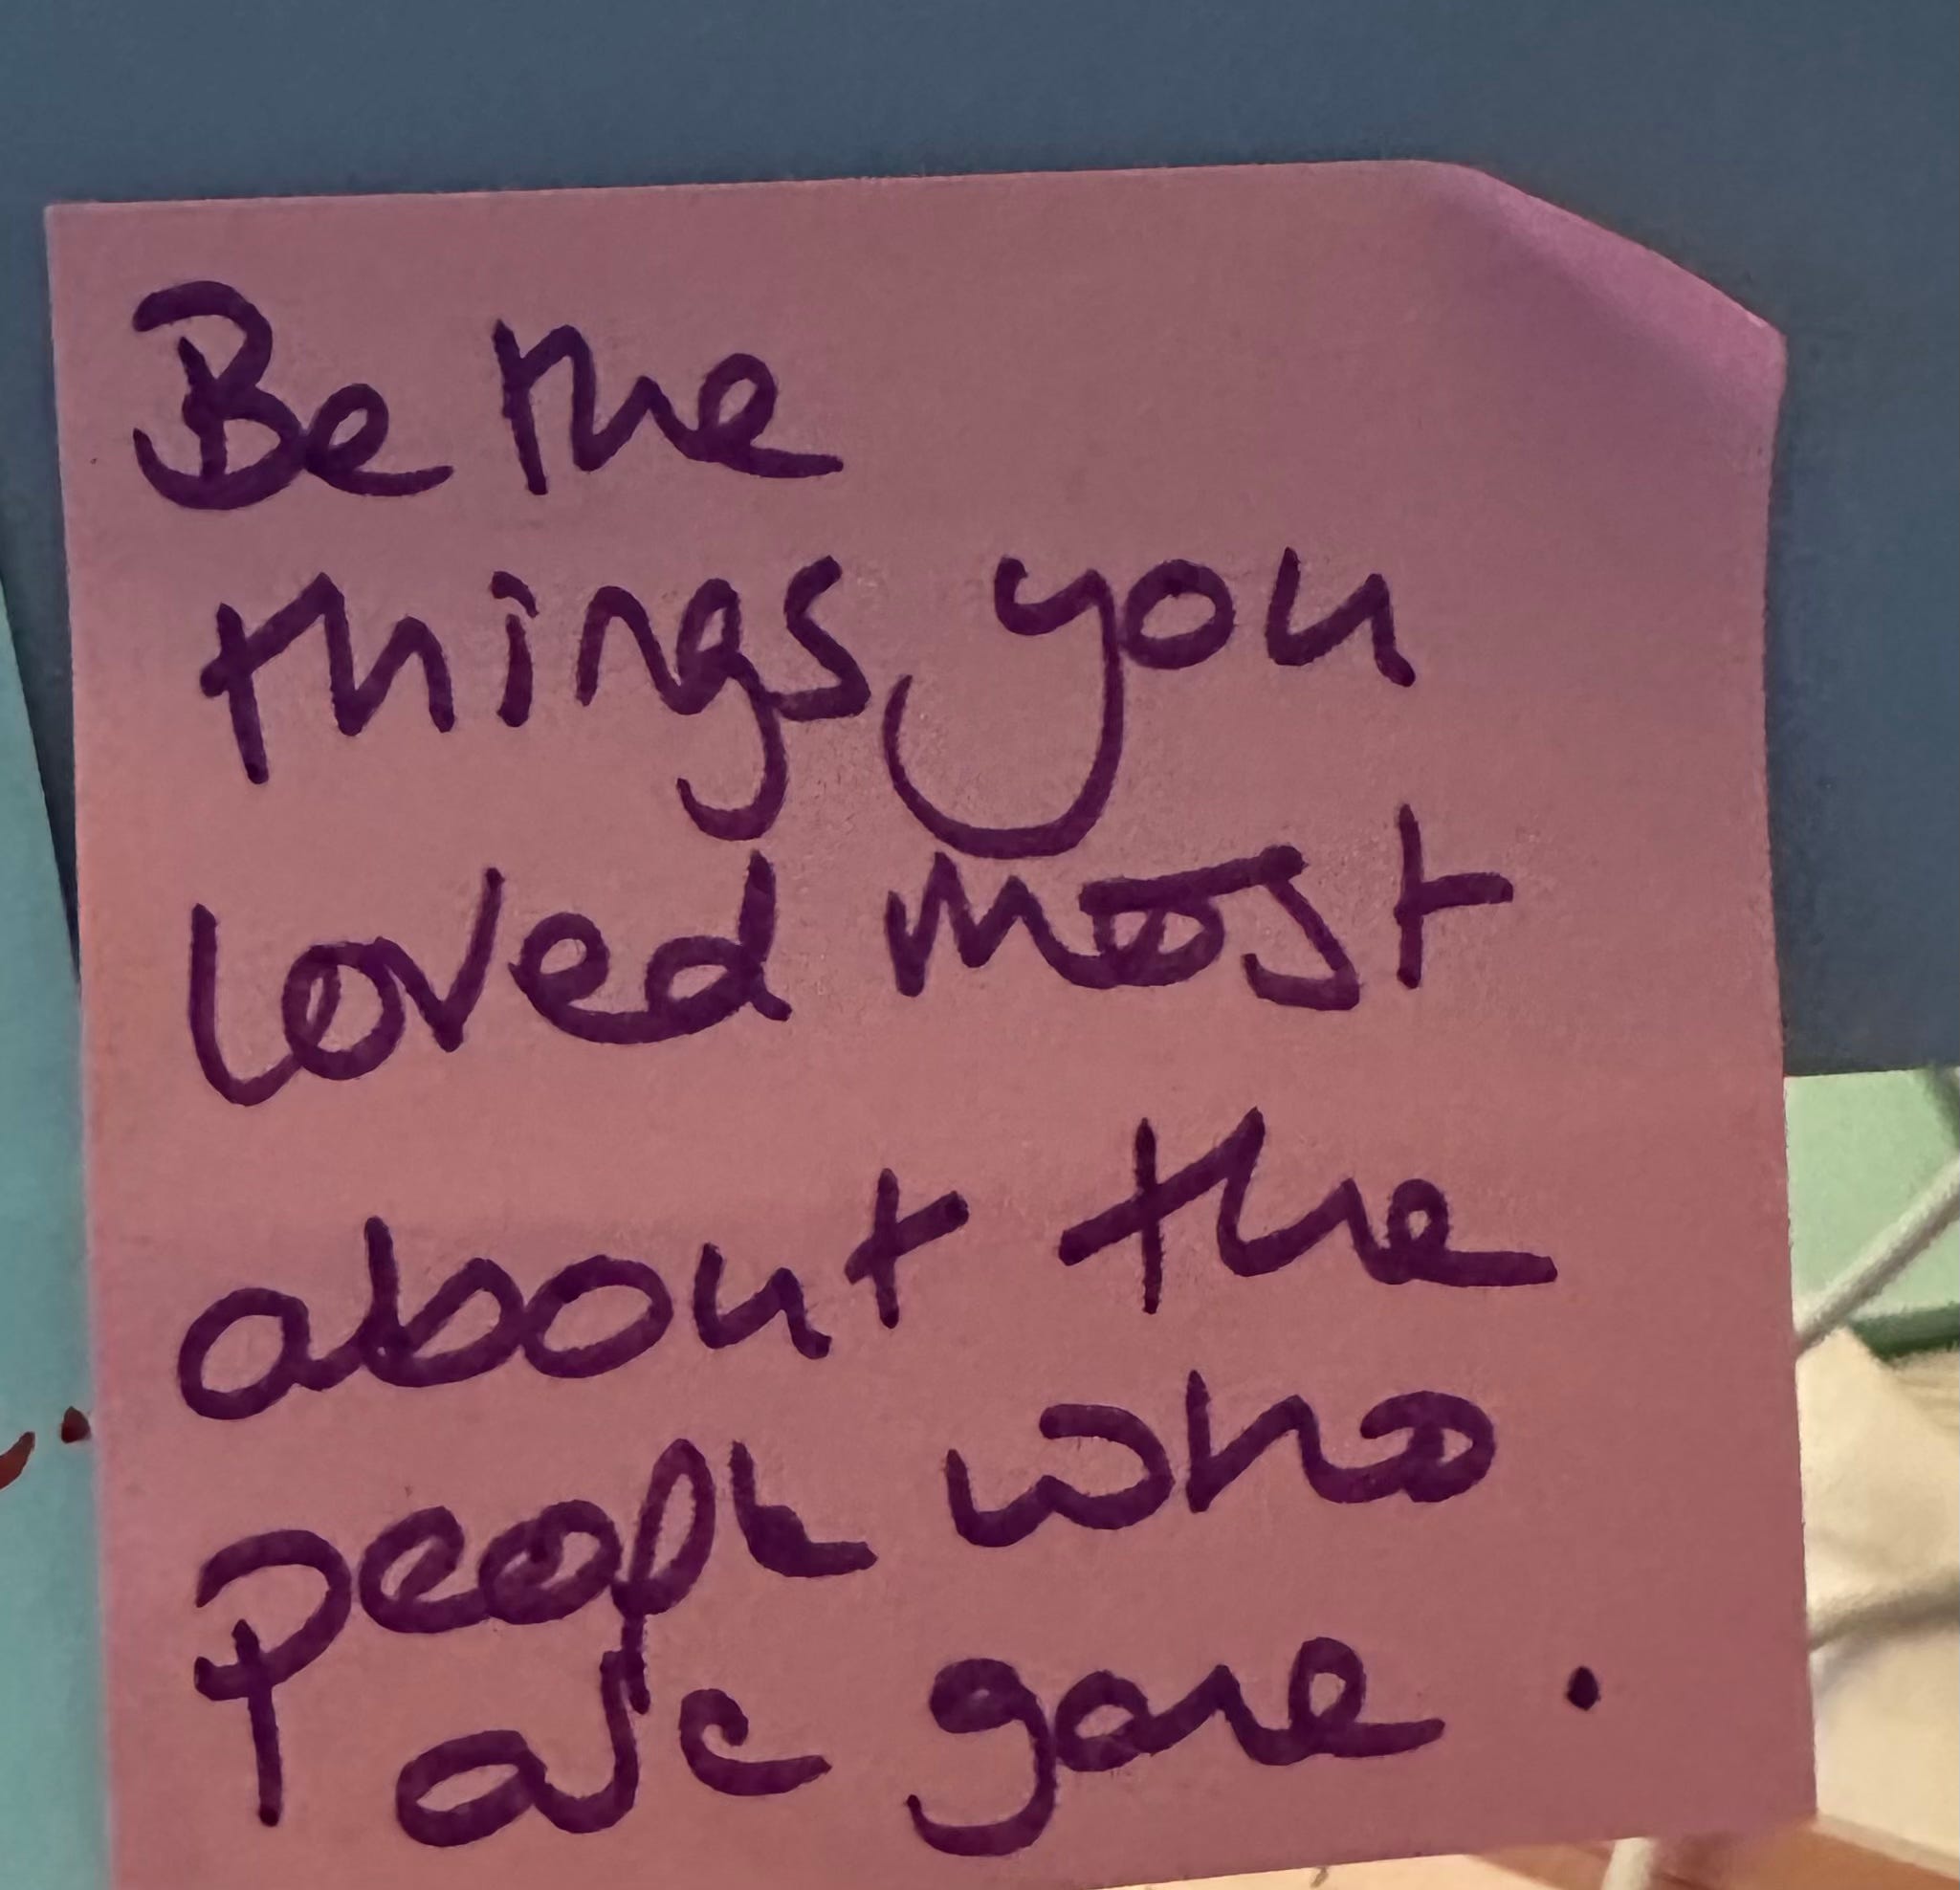 Be the
things you
loved most
about the
people who
are gone.